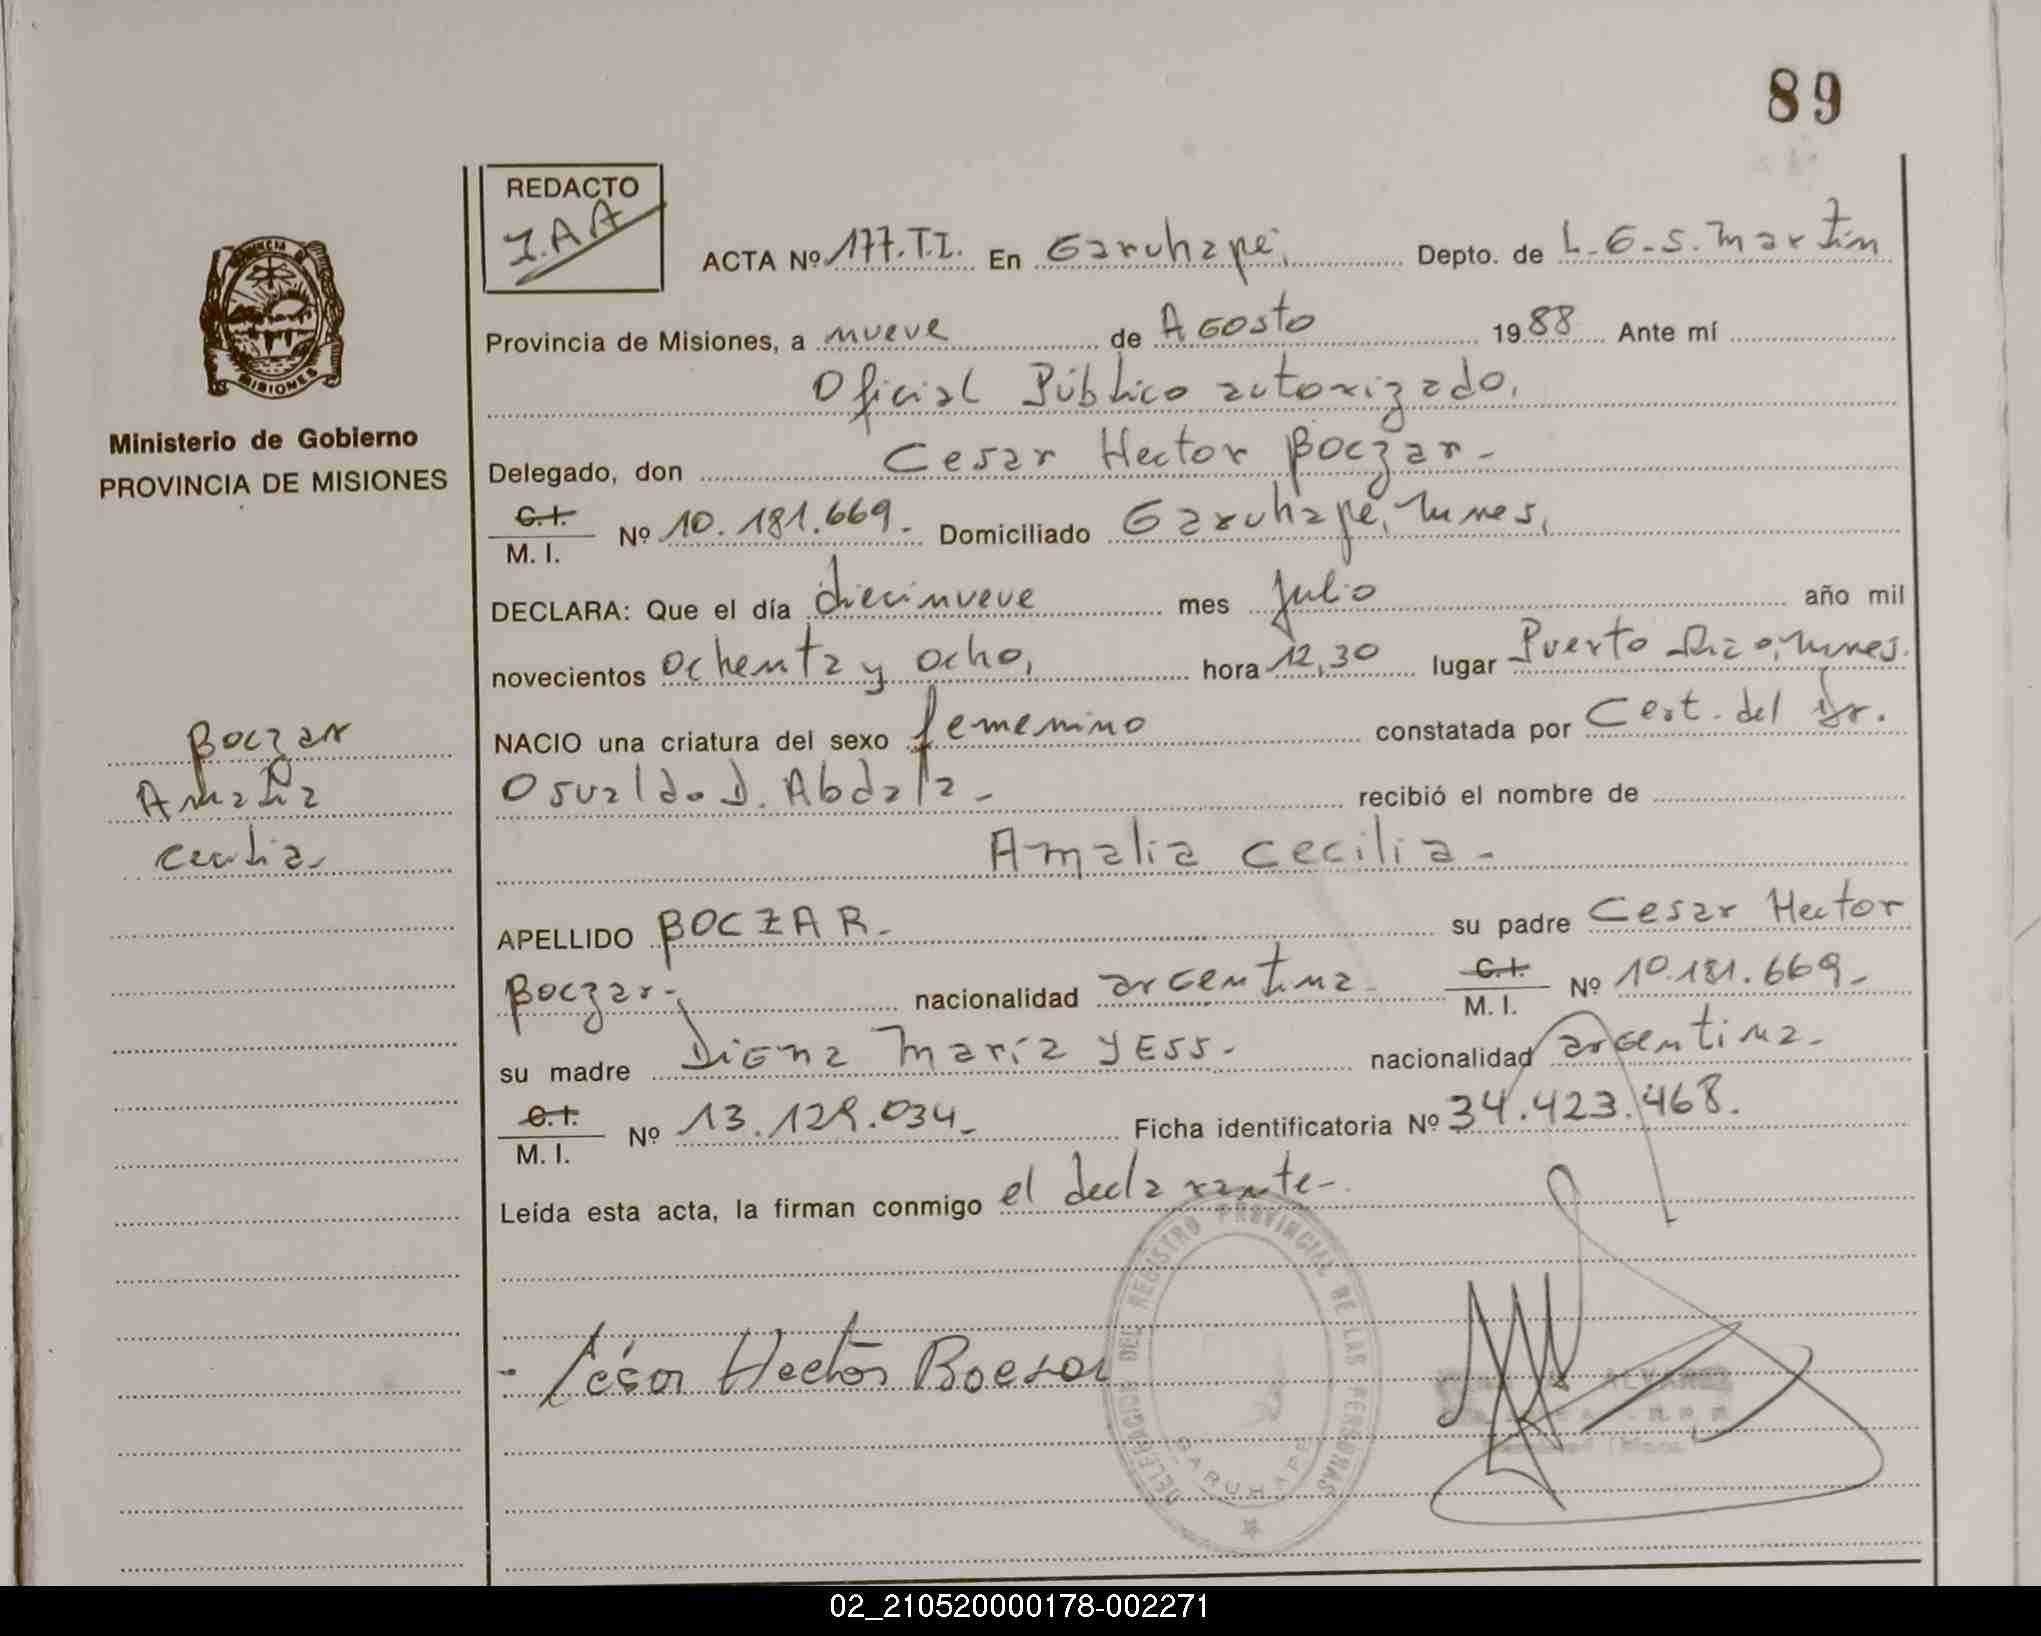 89
REDACTO
I.A.A
ACTA Nº 177.T.I. En Garuhapé, Depto. de L.G.S.Martín
Provincia de Misiones, a nueve de Agosto 1988 Ante mí
Oficial Público autorizado,
Ministerio de Gobierno
PROVINCIA DE MISIONES
MISIONES
Delegado, don Cesar Hector Boczar-
C.I.
M. I. Nº 10.181.669. Domiciliado Garuhapé, Mnes,
DECLARA: Que el día diecinueve mes Julio año mil
novecientos ochenta y ocho, hora 12,30 lugar Puerto Rico, Mnes.
NACIO una criatura del sexo femenino constatada por Cert. del Dr.
Osvaldo D. Abdala- recibió el nombre de
Amalia Cecilia-
Boczar
Amalia
Cecilia-
APELLIDO BOCZAR- su padre Cesar Hector
Boczar-, nacionalidad argentina- C.I. M. I. Nº 10.181.669-
su madre Digna María YESS- nacionalidad argentina-
C.I.
M. I. Nº 13.129.034- Ficha identificatoria Nº 34.423.468.
Leída esta acta, la firman conmigo el declarante-
- César Hector Boczar
DELEGACION DEL REGISTRO PROVINCIAL DE LAS PERSONAS
GARUHAPE
ALVAREZ
02_210520000178-002271